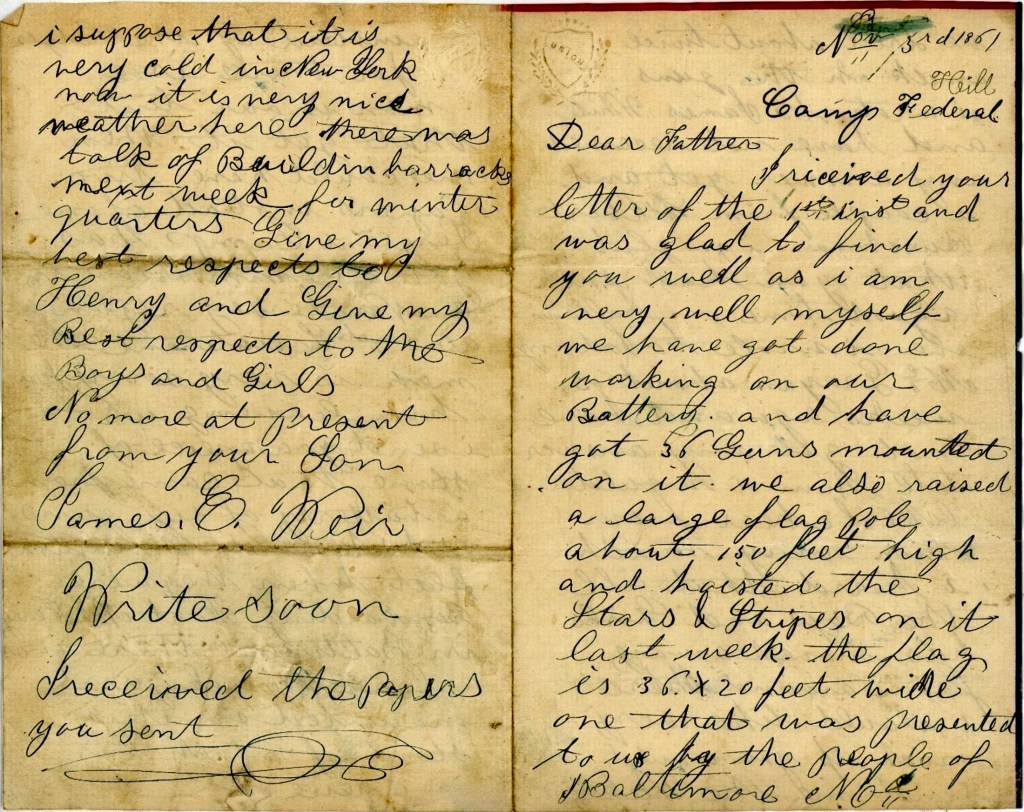 Nov 3rd 1861
Hill
Camp Federal
Dear Father
I riceived your
letter of the 1st inst and
was glad to find
you well as i am
very well myself
we have got done
working on our
Battery. and have
got 36 Guns mounted
on it. we also raised
a large flag pole
about 150 feet high
and hoisted the
Stars & Stripes on it
last week. the flag
is 36. x 20 feet wide
one that was presented
to us by the people of
Baltimore
i suppose that it is
very cold in New York
now it is very nice
weather here there was
talk of Buildin barracks
next week for winter
quarters Give my
best respects to
Henry and Give my
Best respects to the
Boys and Girls
No more at present
from your Son
James. E. Weir
Write soon
I received the papers
you sent
UNION